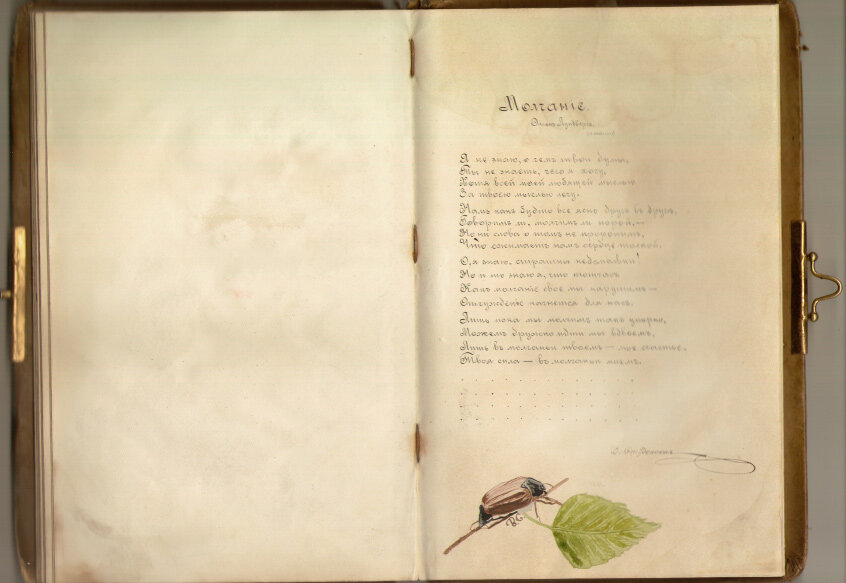 Молчанiе.
Я не знаю, о чемъ твои думы,
Ты не знаешь, чего я хочу,
Хотя всей моей любящей мыслью
За твоею мыслью лечу.
Намъ какъ будто все ясно другъ въ другѣ,
Говоримъ ли, молчимъ ли порой,—
Но ни слова о томъ не проронимъ,
Что сжимаетъ намъ сердце тоской.
О, я знаю, страшны недомолвки!
Но и то знаю я, что тотчасъ
Какъ молчанiе свое мы нарушимъ —
Отчужденье начнется для насъ.
Лишь пока мы молчимъ такъ упорно,
Можемъ дружно идти мы вдвоемъ,
Лишь въ молчаньи твоемъ — мое счастье,
Твоя сила — въ молчаньи моемъ.